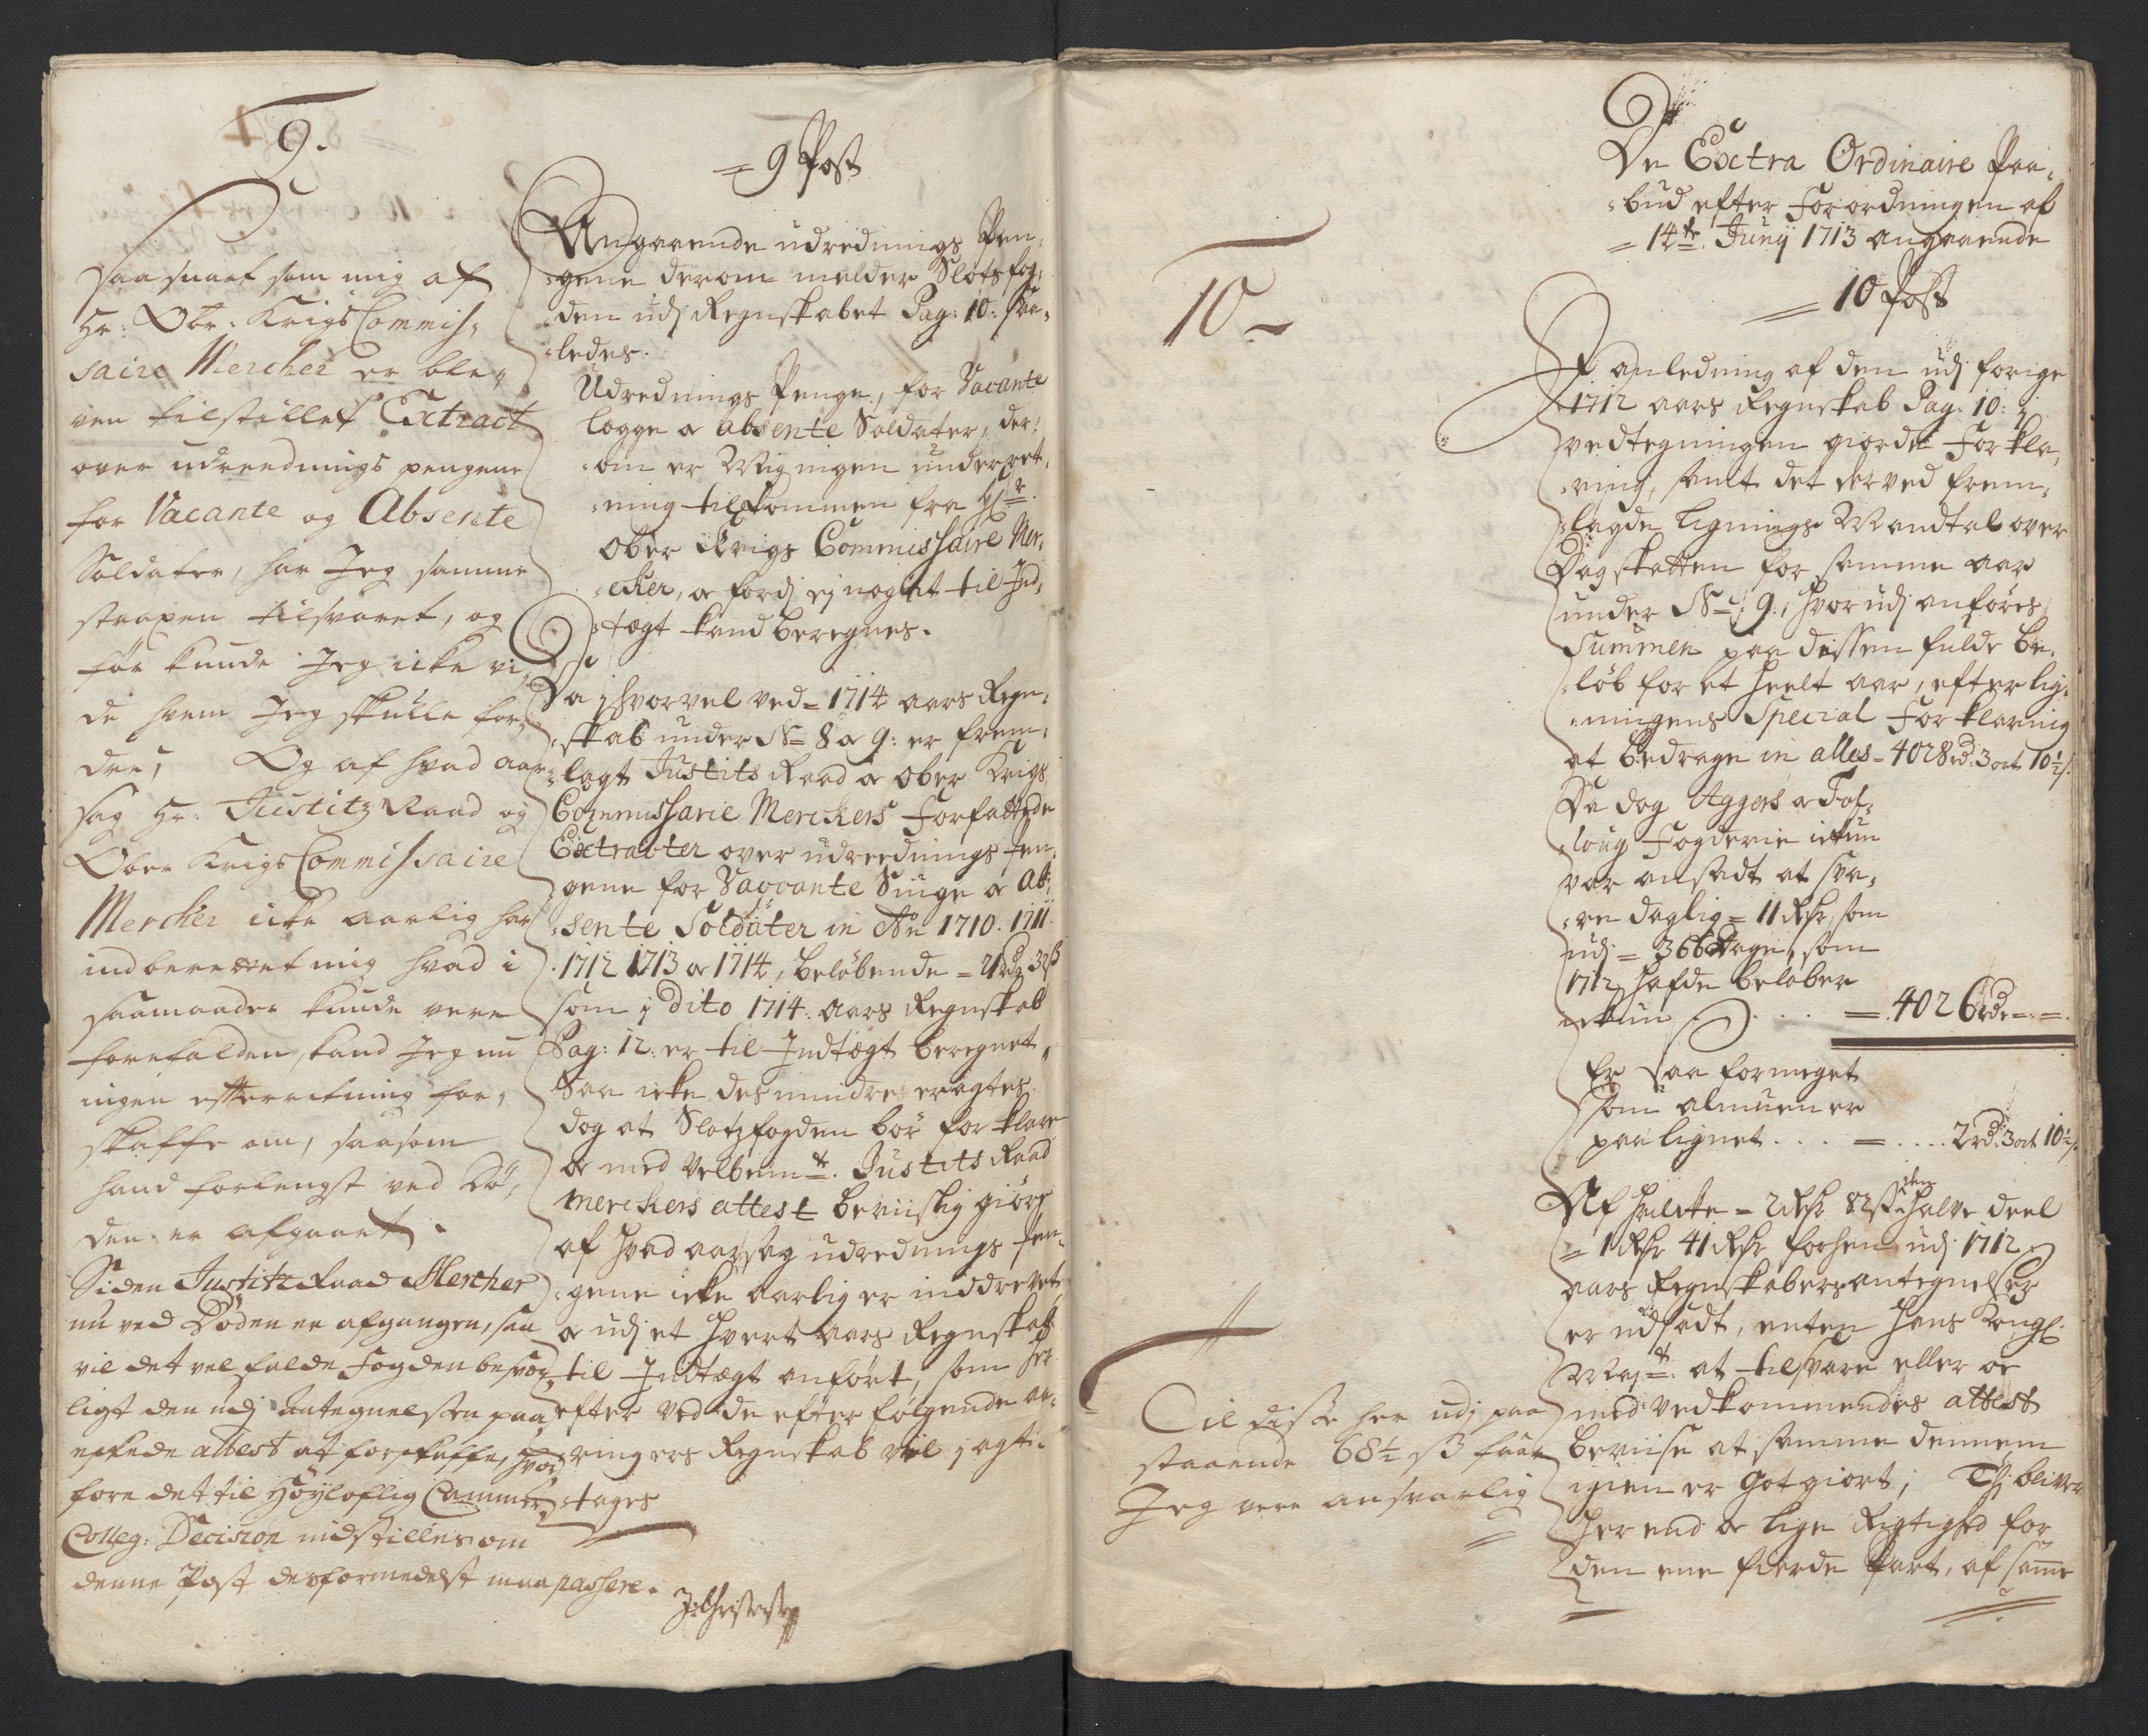 9.
Saa snart som mig af
Hr: Obr: Krigs Commis,
saire Mercker er ble,
ven tilstillet Extract
over udreednings pengene
for Vacante og Absente
Soldater, har Jeg samme
straxen tilsvaret, og
før kunde Jeg icke vi,
de hvem Jeg skulle for,
dre, Og af hvad aar
sag Hr: Justitz Raad og
Ober Krigs Commissaire
Mercker icke aarlig har
indberettet mig hvad i
saamaader kunde vere
forefalden, kand Jeg nu
ingen efterretning for,
skaffe om, saasom
hand forlengst ved Dø,
den er afgaaet.
Siden Justitz Raad Mercker
nu ved Døden er afgangen, saa
vil det vel falde Fogden besvær,
ligt den udj Antegnelsen paa
eskede attest at forskaffe, hvor
fore det til Høyloflig Cammer
Colleg: Decision indstilles om
denne Post desformedelst maa passere.
= 9 Post
Angaaende udrednings Pen,
gene derom melder Slots fog,
den udj Regnskabet Pag: 10: saa,
ledes.
Udrednings Penge, for Vacante
Lægge og absente Soldater, der,
om er ingen underret,
ning tilkommen fra Hr
Ober Krigs Commissaire Mer,
cker, og fordj ej noget til Ind,
tægt kand beregnes.
Da j hvorvel ved 1714 aars Regn,
skab under No 8 og 9: er frem,
lagt Justits Raad og Ober Krigs
Commissarie Merckers Forfattede
Extracter over udreednings Pen,
gene for Vaccante Lægge og Ab,
sente Soldater in Ao 1710. 1711.
1712 1713 og 1714, beløbende = 21rd 32s
som j dito 1714. aars Regnskab
Pag: 12: er til Indtægt beregnet,
Saa icke des mindre eragtes
dog at Slotzfogden bør forklare
og med Velbemte. Justits Raad
Merckers attest beviislig giøre
af hvad aarsag udrednings Pen,
gene icke aarlig er inddrevet
og udj et hvert aars Regnskab
til Indtægt anført, som her
efter ved de efter følgende aa,
ringers Regnskab vil j agt,
tages
J: Christensen
De Extra Ordinaire Paa,
bud efter Forordningen af
14te. Junij 1713 angaaende
10 Post
10
J anledning af den udj forige
1712 aars Regnskab Pag: 10: j
vedtegningen giorde Forkla,
ring, samt det derved frem,
lagde Lignings Mandtal over
Dagskatten for samme aar
under No 9:, hvorudj anføres
Summen paa dissen fulde be,
løb for et heelt aar, efter lig,
ningens Special Forklaring
at bedrage in alles = 4028rd: 3ort 10½s:
Da dog Aggers og Fol,
loug Fogderie ickun
var ansadt at sva,
re daglig = 11 Rdr, som
udj = 366 Dage, som
1712 hafde beløber
ickun . . . = 4026rdr = . =.
Er saa formeget
som almuen er
paalignet . . . = . . . . 2rd: 3ort 10½s.
Af hvilcke = 2 Rdr 82s den halve deel
= 1 Rdr 41 forhen udj 1712
aars Regnskabers antegnelser
er udsadt, enten Hans Kongl:
Mayt: at tilsvare eller og
med vedkommendes attest
beviise at samme dennem
igien er Got giort; Thj bliver
her end og lige Rigtighed for
den ene fierde Part, af samme
Til disse her udj paa
staaende 68½ s faar
Jeg vere ansvarlig